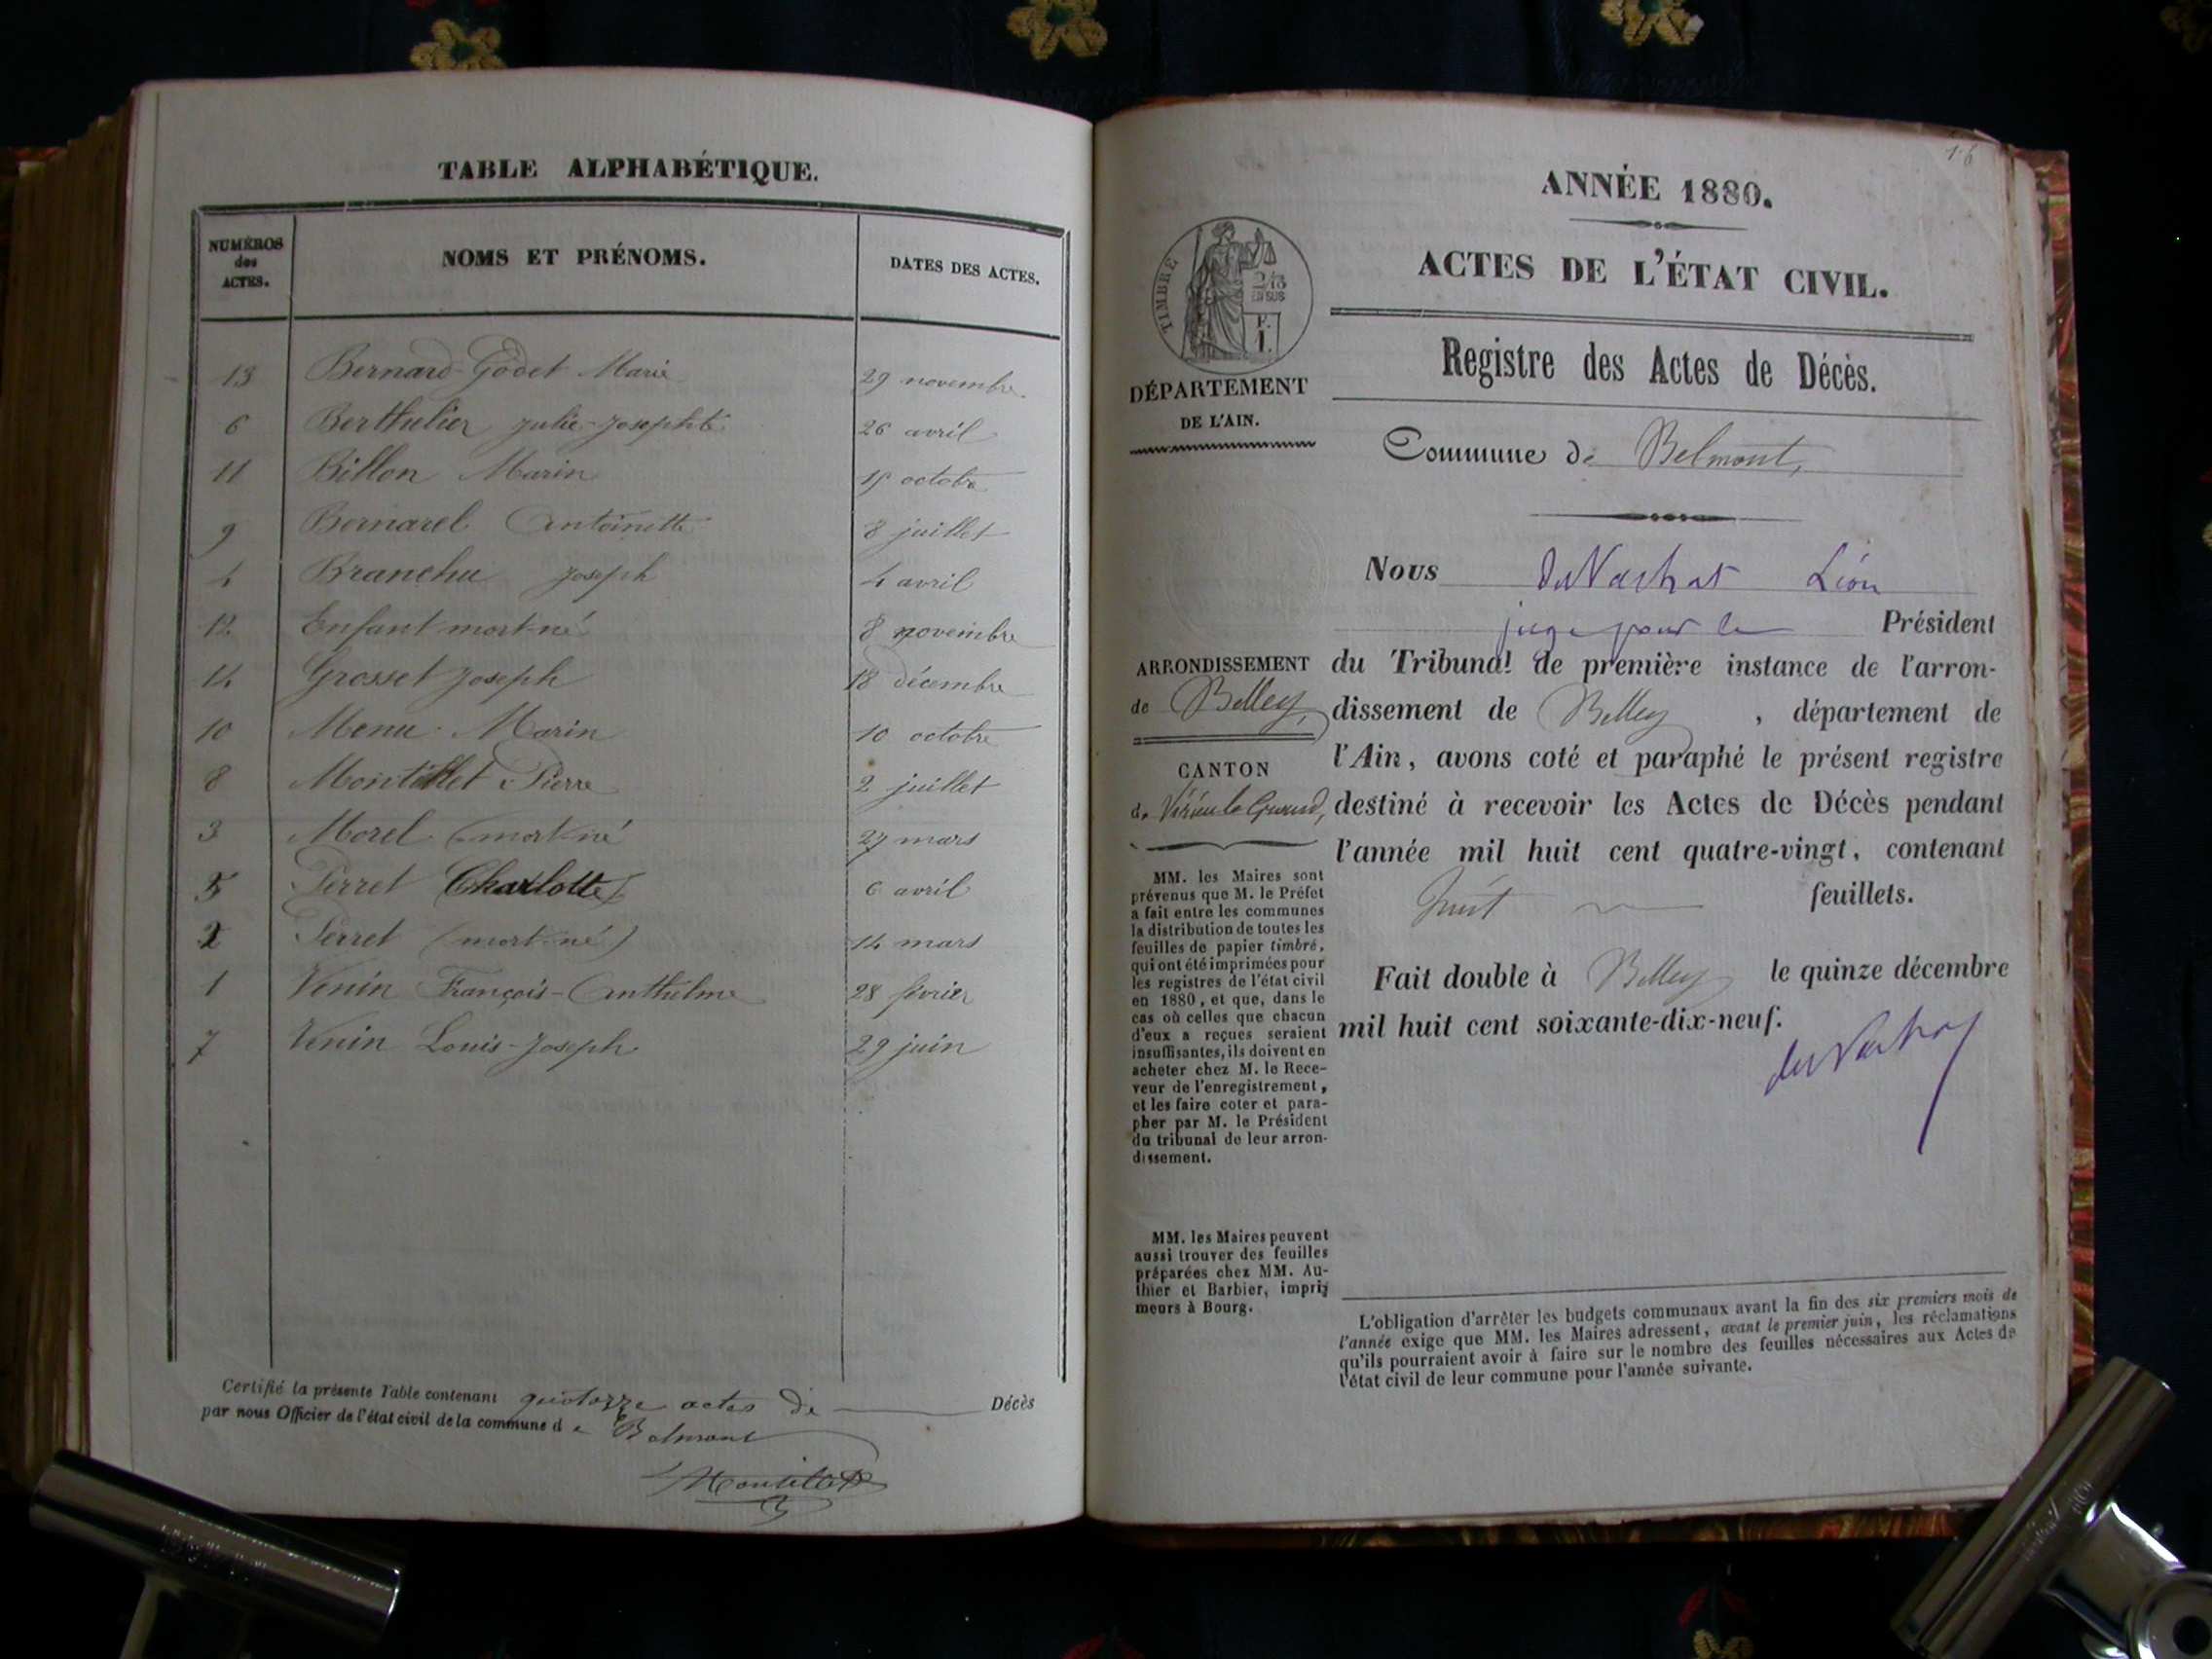 TABLE ALPHABÉTIQUE.
NUMÉROS des ACTES. NOMS ET PRÉNOMS. DATES DES ACTES.
13 Bernard-Godet Marie 29 novembre
6 Berthelier Julie-Josephte 26 avril
11 Billon Marin 15 octobre
9 Bornarel Antoinette 8 juillet
4 Branchu Joseph 4 avril
12 Enfant mort-né 8 novembre
14 Grosset Joseph 18 décembre
10 Menu Marin 10 octobre
8 Montillet Pierre 2 juillet
3 Morel (mort-né 27 mars
5 Perret Charlotte 6 avril
2 Perret (mort-né) 14 mars
1 Venin François-Anthelme 28 février
7 Venin Louis-Joseph 29 juin
Certifié la présente Table contenant quatorze actes de Décès
par nous Officier de l'état civil de la commune de Belmont
Montillet
16
ANNÉE 1880.
ACTES DE L'ÉTAT CIVIL.
TIMBRE
2/10
EN SUS
F.
1.
DÉPARTEMENT
DE L'AIN.
Registre des Actes de Décès.
Commune de Belmont,
Nous Léon
juge pour le Président
du Tribunal de première instance de l'arron-
dissement de Belley, département de
l'Ain, avons coté et paraphé le présent registre
destiné à recevoir les Actes de Décès pendant
l'année mil huit cent quatre-vingt, contenant
huit feuillets.
Fait double à Belley le quinze décembre
mil huit cent soixante-dix-neuf.
ARRONDISSEMENT
de Belley,
CANTON
de Virieu le Grand,
MM. les Maires sont
prévenus que M. le Préfet
a fait entre les communes
la distribution de toutes les
feuilles de papier timbré,
qui ont été imprimées pour
les registres de l'état civil
en 1880, et que, dans le
cas où celles que chacun
d'eux a reçues seraient
insuffisantes, ils doivent en
acheter chez M. le Rece-
veur de l'enregistrement,
et les faire coter et para-
pher par M. le Président
du tribunal de leur arron-
dissement.
MM. les Maires peuvent
aussi trouver des feuilles
préparées chez MM. Au-
thier et Barbier, impri-
meurs à Bourg.
L'obligation d'arrêter les budgets communaux avant la fin des six premiers mois de
l'année exige que MM. les Maires adressent, avant le premier juin, les réclamations
qu'ils pourraient avoir à faire sur le nombre des feuilles nécessaires aux Actes de
l'état civil de leur commune pour l'année suivante.